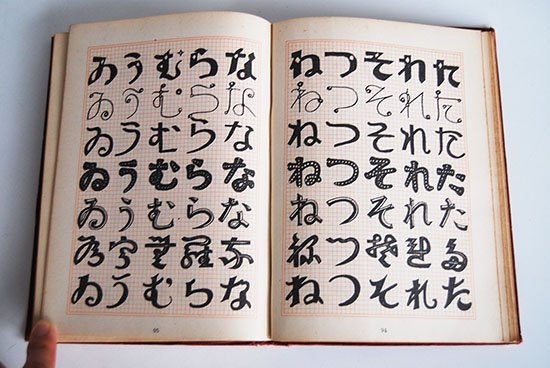 たれそつね
たれそつね
たれそつね
たれそつね
たれそつね
多連楚つ祢
たれそつね
94
ならむうゐ
ならむうゐ
ならむうゐ
ならむうゐ
ならむうゐ
奈羅無宇為
ならむうゐ
95